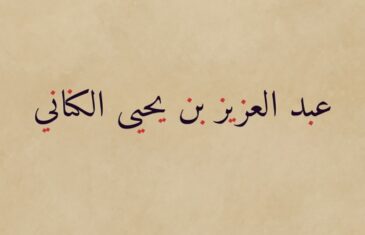 عبد العزيز بن يحيى الكناني